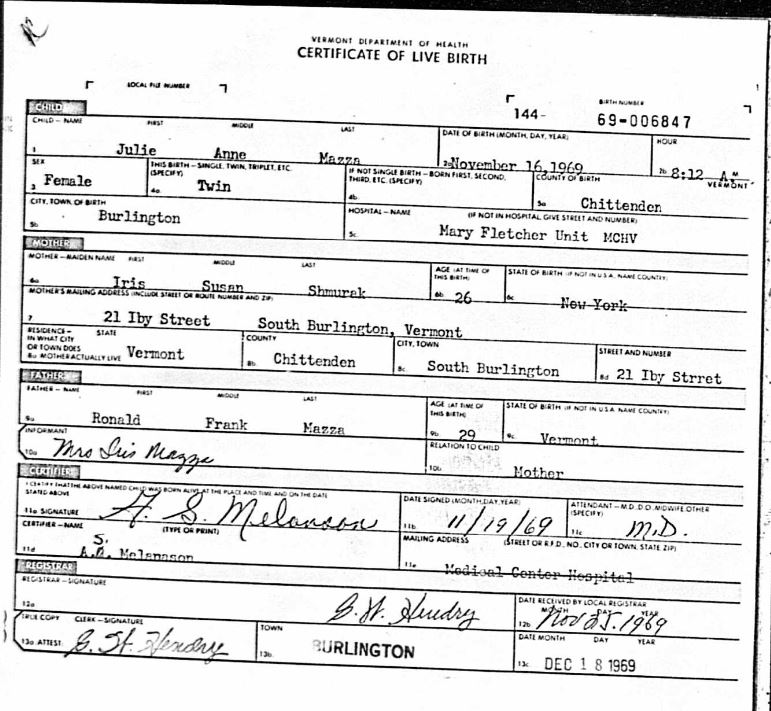 VERMONT DEPARTMENT OF HEALTH
CERTIFICATE OF LIVE BIRTH
LOCAL FILE NUMBER
144-
BIRTH NUMBER
69-006847
CHILD
CHILD – NAME FIRST MIDDLE LAST
DATE OF BIRTH (MONTH, DAY, YEAR)
HOUR
1 Julie Anne Mazza
2a November 16, 1969
2b 8:12 A M
VERMONT
SEX
3 Female
THIS BIRTH – SINGLE, TWIN, TRIPLET, ETC. (SPECIFY)
4a Twin
IF NOT SINGLE BIRTH – BORN FIRST, SECOND, THIRD, ETC. (SPECIFY)
4b
COUNTY OF BIRTH
5a Chittenden
CITY, TOWN, OF BIRTH
5b Burlington
HOSPITAL – NAME (IF NOT IN HOSPITAL, GIVE STREET AND NUMBER)
5c Mary Fletcher Unit MCHV
MOTHER
MOTHER – MAIDEN NAME FIRST MIDDLE LAST
6a Iris Susan Shmurak
AGE (AT TIME OF THIS BIRTH)
6b 26
STATE OF BIRTH (IF NOT IN U.S.A. NAME COUNTRY)
6c New York
MOTHER'S MAILING ADDRESS (INCLUDE STREET OR ROUTE NUMBER AND ZIP)
7 21 Iby Street South Burlington, Vermont
RESIDENCE – IN WHAT CITY OR TOWN DOES MOTHER ACTUALLY LIVE
STATE
8a Vermont
COUNTY
8b Chittenden
CITY, TOWN
8c South Burlington
STREET AND NUMBER
8d 21 Iby Strret
FATHER
FATHER – NAME FIRST MIDDLE LAST
9a Ronald Frank Mazza
AGE (AT TIME OF THIS BIRTH)
9b 29
STATE OF BIRTH (IF NOT IN U.S.A. NAME COUNTRY)
9c Vermont
INFORMANT
10a Mrs Iris Mazza
RELATION TO CHILD
10b Mother
CERTIFIER
I CERTIFY THAT THE ABOVE NAMED CHILD WAS BORN ALIVE AT THE PLACE AND TIME AND ON THE DATE STATED ABOVE
11a SIGNATURE A. S. Melanson
DATE SIGNED (MONTH, DAY, YEAR)
11b 11/19/69
ATTENDANT – M.D., D.O., MIDWIFE, OTHER (SPECIFY)
11c M.D.
CERTIFIER – NAME (TYPE OR PRINT)
S.
11d A.O. Melanason
MAILING ADDRESS (STREET OR R.F.D., NO., CITY OR TOWN, STATE, ZIP)
11e Medical Center Hospital
REGISTRAR
REGISTRAR – SIGNATURE
12a G. St. Hendry
DATE RECEIVED BY LOCAL REGISTRAR
MONTH DAY YEAR
12b Nov 25. 1969
TRUE COPY CLERK – SIGNATURE
13a ATTEST: G. St. Hendry
TOWN
13b BURLINGTON
DATE MONTH DAY YEAR
13c DEC 18 1969